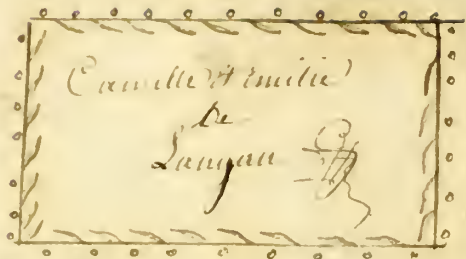 Camille & Emilie
de
Langau